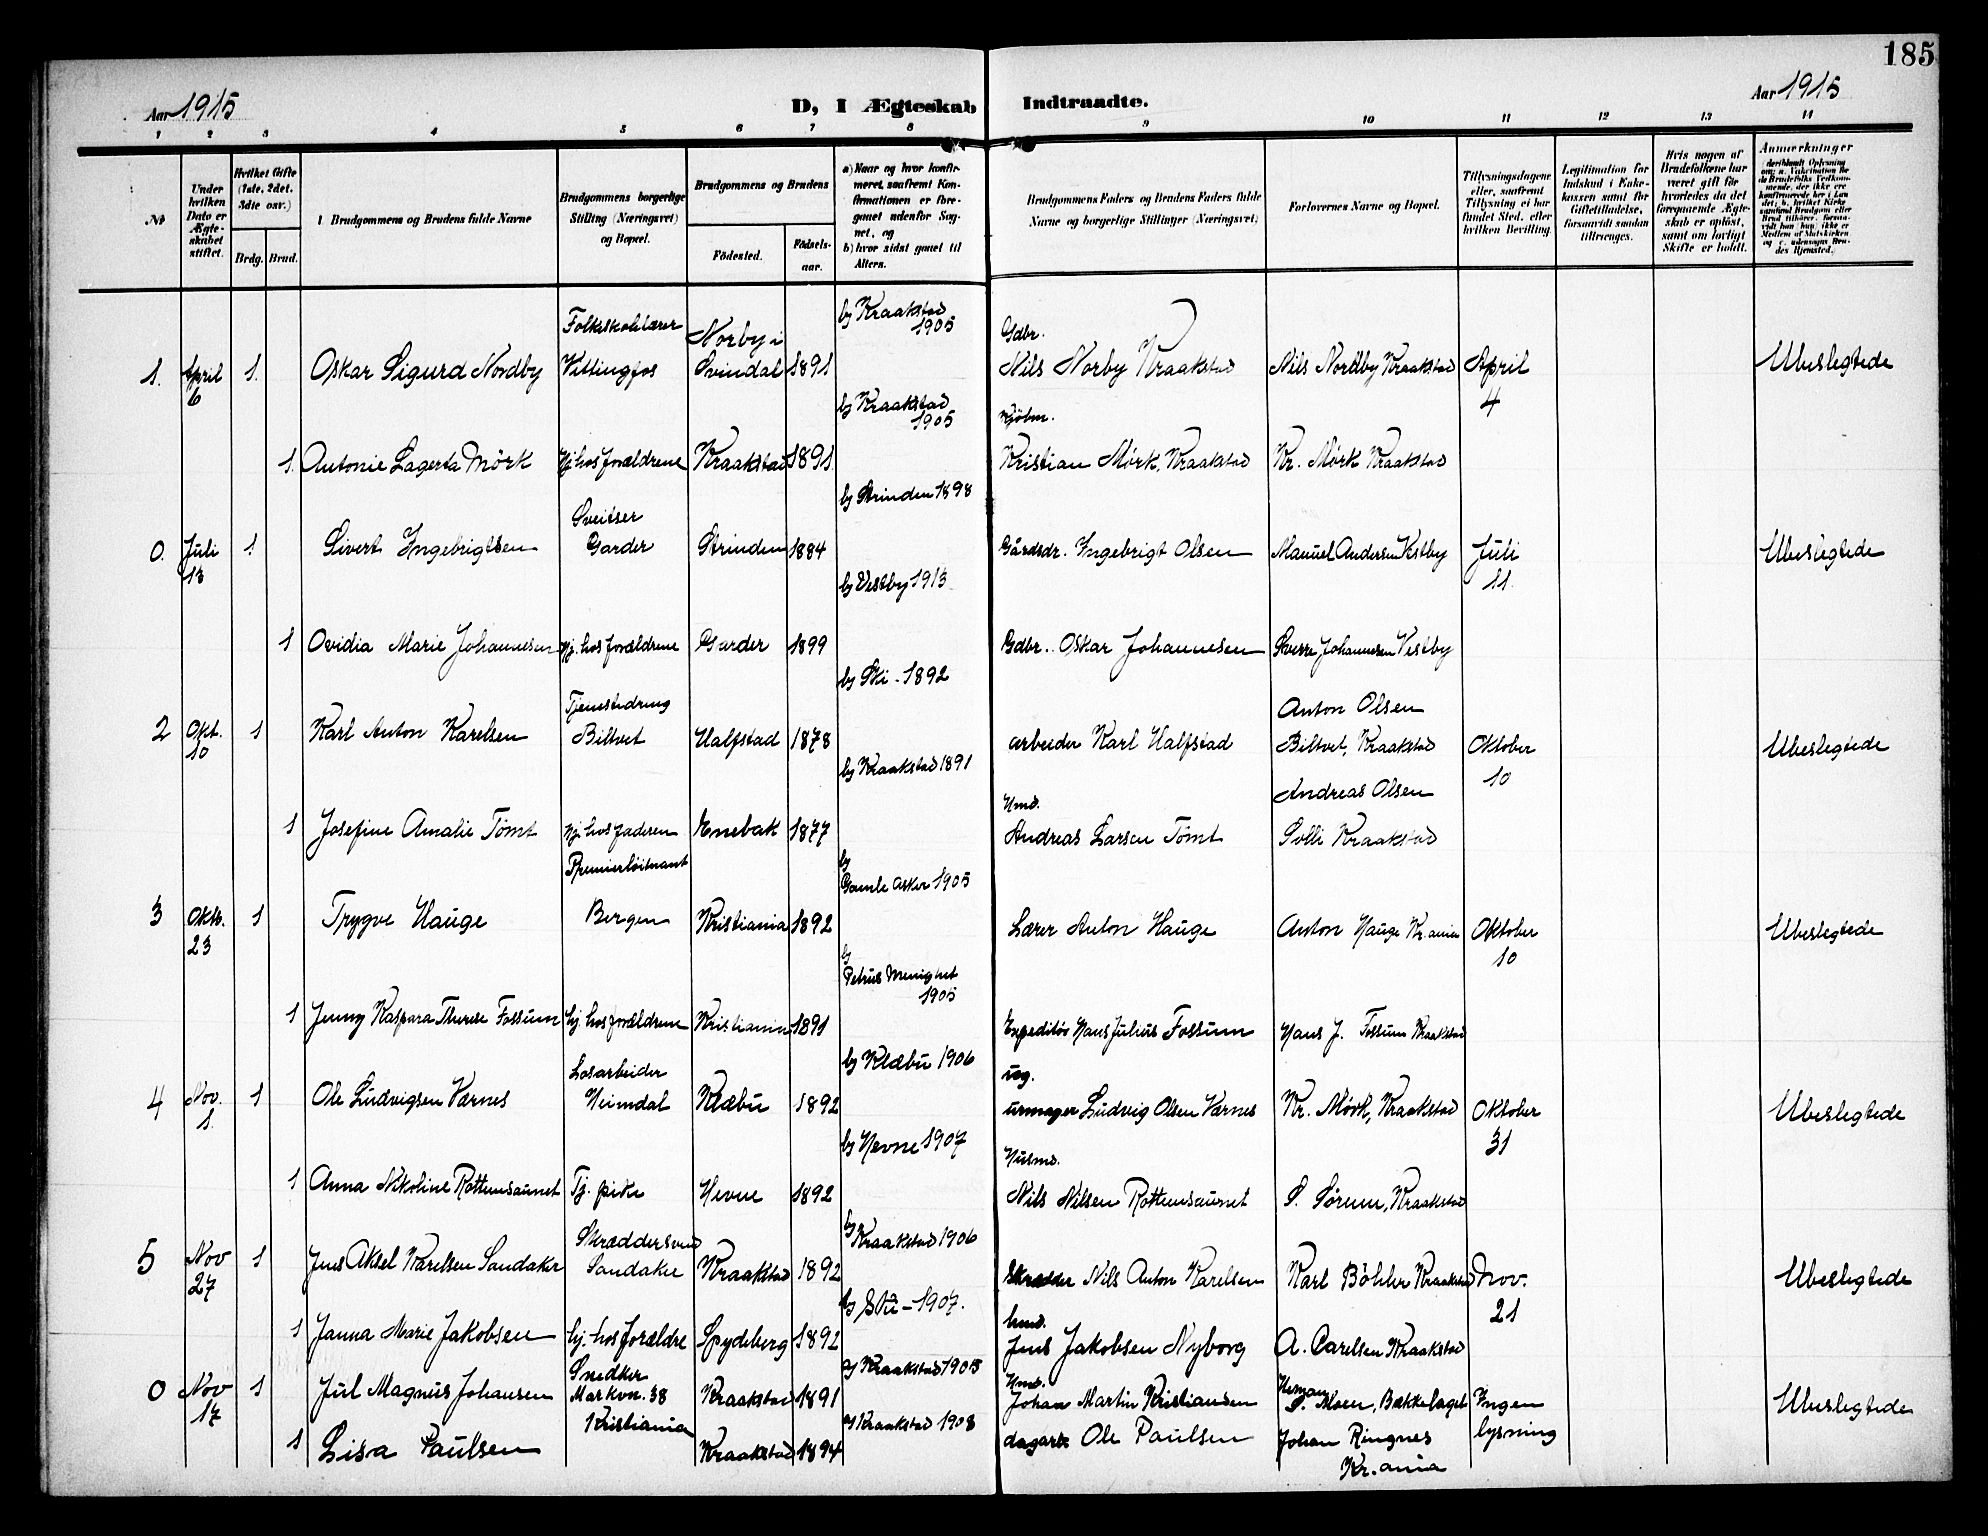 185
Aar 1915
D, I Ægteskab Indtraadte.
Aar 1915
1 2 3 4 5 6 7 8 9 10 11 12 13 14
№
Under hvilken Dato er Ægteskabet stiftet.
Hvilket Gifte (1ste, 2det, 3die osv.)
Brdg. Brud.
Brudgommens og Brudens fulde Navne
Brudgommens borgerlige Stilling (Næringsvei) og Bopæl.
Brudgommens og Brudens
Fødested.
Fødselsaar.
a) Naar og hvor konfirmeret, saafremt Konfirmationen er foregaaet udenfor Sognet, og
b) hvor sidst gaaet til Alters.
Brudgommens Faders og Brudens Faders fulde Navne og borgerlige Stillinger (Næringsvei)
Forlovernes Navne og Bopæl.
Tillysningsdagene eller, saafremt Tillysning ei har fundet Sted, efter hvilken Bevilling.
Legitimation for Indskud i Enkekassen samt for Giftetilladelse, forsaavidt saadan tiltrænges.
Hvis nogen af Brudefolkene har været gift før hvorledes da det foregaaende Ægteskab er opløst, samt om lovligt Skifte er holdt.
Anmerkninger
Folkeskolelærer
b) Kraakstad 1905
Gdbr.
1. April 6 1. Oskar Sigurd Nordby Vittingfos Norby i Svindal 1891 Nils Norby Kraakstad Nils Nordby Kraakstad April 4 Ubeslegtede
b) Kraakstad 1905
Kjøbm.
1. Antonie Lagerta Mörk Hj. hos forældrene Kraakstad 1891 Kristian Mørk, Kraakstad Kr. Mørk Kraakstad
b) Strinden 1898
Sveitser
0. Juli 13 1 Sivert Ingebrigtsen Garder Strinden 1884 Gårdsdr. Ingebrigt Olsen Manuel Andersen Vestby Juli 11. Ubeslegtede
b) Vestby 1913
1 Ovidia Marie Johannesen Hj. hos forældrene Garder 1899 Gdbr. Oskar Johannesen Sverre Johannesen Vestby
b) Ski - 1892
Tjenestedreng
Anton Olsen
2 Okt. 10 1 Karl Anton Karelsen Biltvet Halfstad 1878 arbeider Karl Halfstad Biltvet, Kraakstad Oktober 10 Ubeslegtede
b) Kraakstad 1891
Hmd.
Andreas Olsen
1 Josefine Amalie Tømt Hj. hos faderen Enebak 1877 Andreas Larsen Tømt Solli Kraakstad
Premierløitnant
b) Gamle Asker 1905
3 Oktb. 23 1 Trygve Hauge Bergen Kristiania 1892 Lærer Anton Hauge Anton Hauge Kr.ania Oktober 10 Ubeslegtede
b) Petrus Menighet 1905
1 Jenny Kaspara Therese Fossum hj. hos forældrene Kristiania 1891 Expeditör Hans Julius Fossum Hans J. Fossum Kraakstad
Losarbeider
b) Klæbu 1906
4 Nov. 1. 1 Ole Ludvigsen Værnes Heimdal Klæbu 1892 urmager Ludvig Olsen Værnes Kr. Mørk, Kraakstad Oktober 31 Ubeslegtede
b) Hevne 1907
Husmd.
1 Anna Nikoline Rottemsaunet Tj. pike Hevne 1892 Nils Nilsen Rottemsaunet S. Sörum, Kraakstad
Skræddersvend
b) Kraakstad 1906
5 Nov 27 1 Jens Aksel Karelsen Sandaker Sandaker Kraakstad 1892 Skrædder Nils Anton Karelsen Karl Böhler Kraakstad Nov. 21 Ubeslegtede
b) Ski - 1907.
hmd.
1 Janna Marie Jakobsen hj. hos forældre Spydeberg 1892 Jens Jakobsen Nyborg A. Carelsen Kraakstad
Snedker
Hmd.
0 Nov 17 1 Jul Magnus Johansen Markvn. 38 Kristiania Kraakstad 1891 Johan Martin Kristiansen Moen, Bækkelaget Ingen lysning Ubeslegtede
a) Kraakstad 1908
1 Lisa Paulsen Kraakstad 1894 dagarb. Ole Paulsen Johan Ringnes Kr.ania